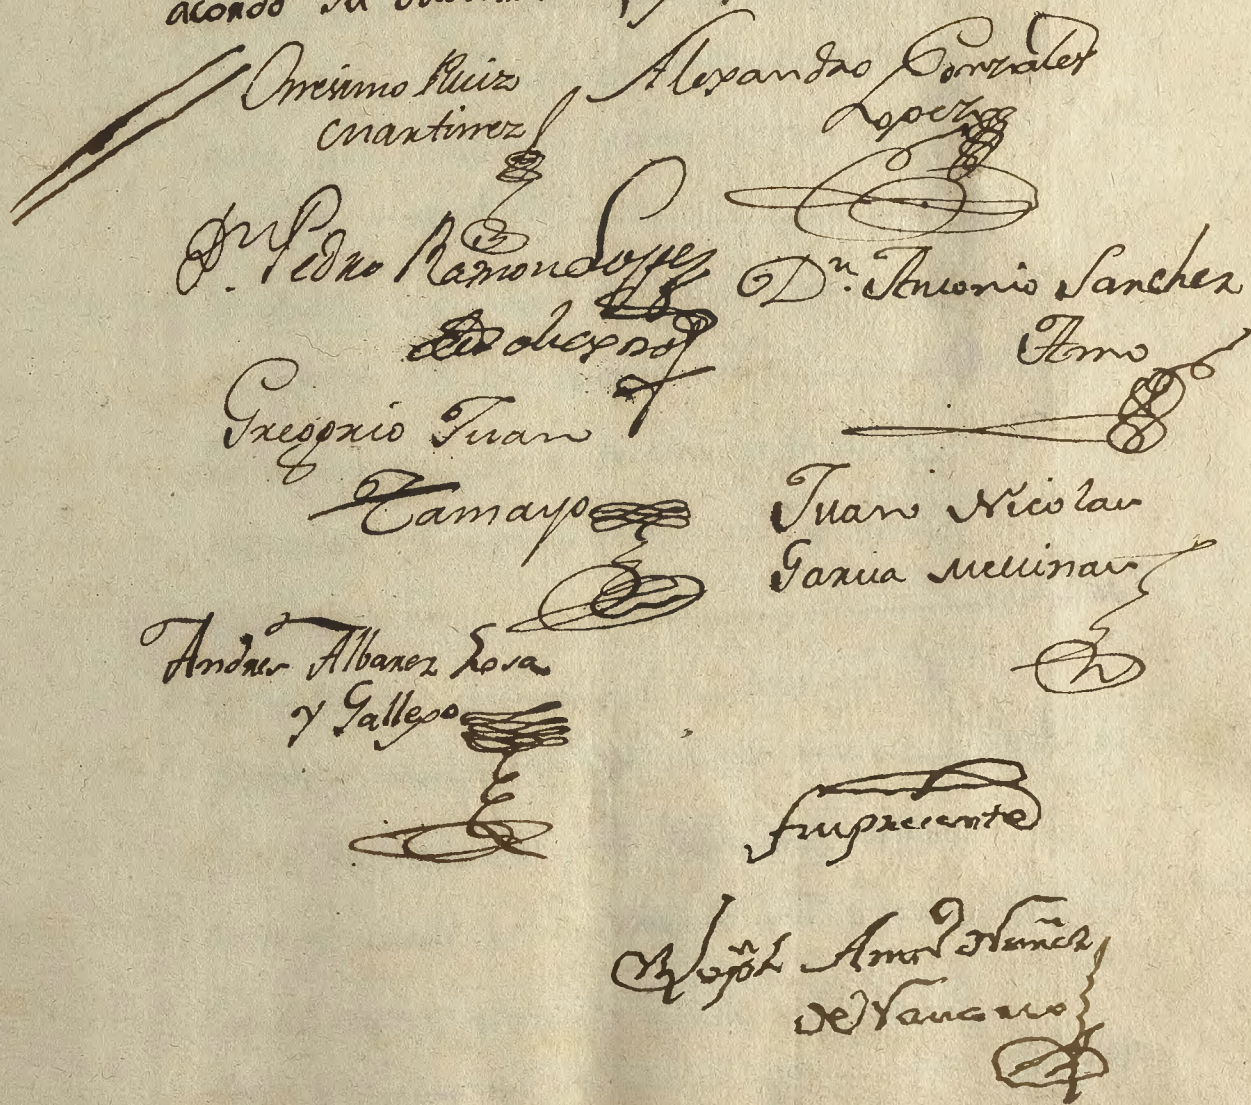 acordo su
Onesimo Ruiz
Martinez
Alexandro Gonzalez
Lopez
Dn. Pedro Ramon Lopez
Dn. Antonio Sanchez
Amo
Gregorio Juan
Tamayo
Juan Nicolas
Garcia Mellinas
Andres Albarez Sosa
y Gallego
fui presente
Nuñez
de